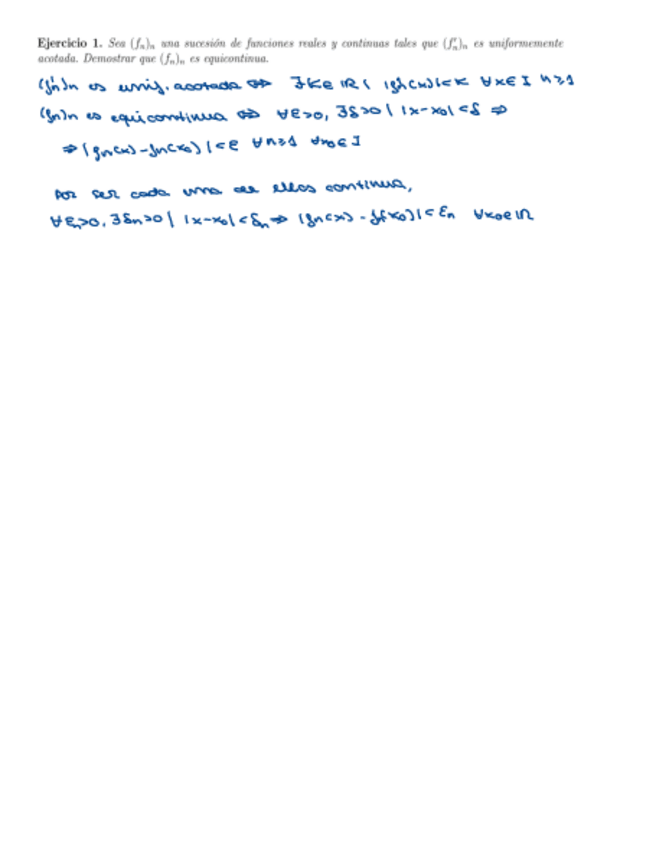 Ejercicio 1. Sea (fn)n una sucesión de funciones reales y continuas tales que (f'n)n es uniformemente
acotada. Demostrar que (fn)n es equicontinua.
(f'n)n es unif. acotada ⇔ ∃K∈ℝ | |f'n(x)|<K ∀x∈I n≥1
(fn)n es equicontinua ⇔ ∀ε>0, ∃δ>0 | |x-x0|<δ ⇒
⇒ |fn(x)-fn(x0)|<ε ∀n≥1 ∀x0∈I
Por ser cada una de ellas continua,
∀εn>0, ∃δn>0 | |x-x0|<δn ⇒ |fn(x)-f(x0)|<εn ∀x0∈ℝ